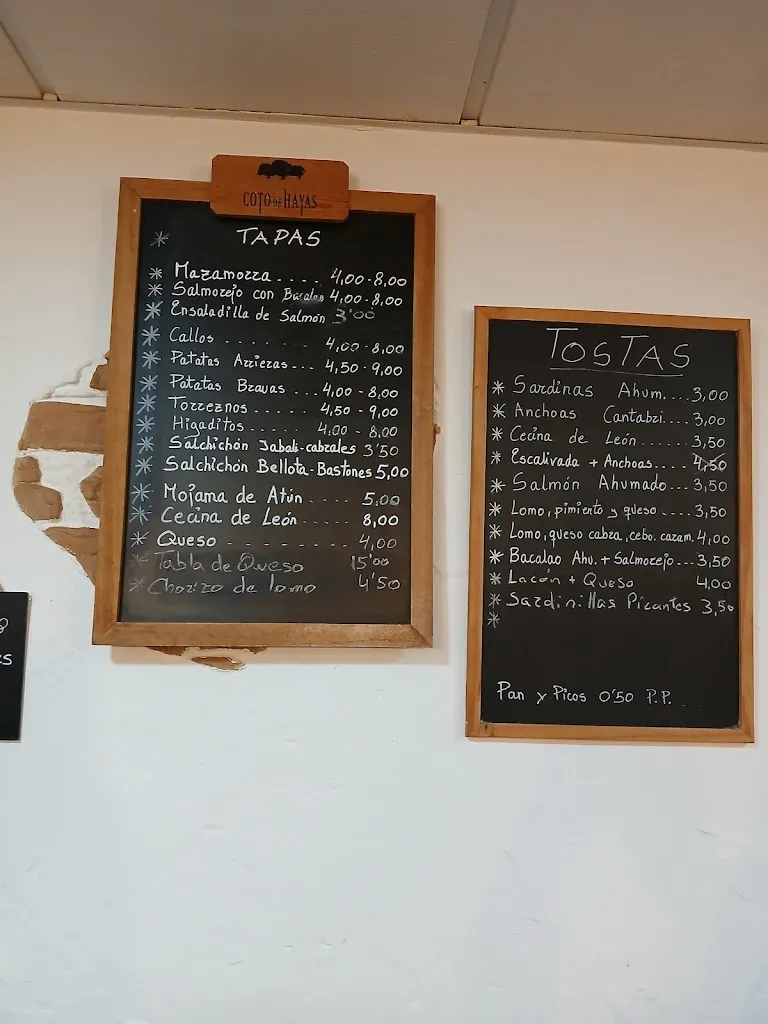 COTO DE HAYAS
* TAPAS
* Mazamorra .... 4,00-8,00
* Salmorejo con Bacalao 4,00-8,00
* Ensaladilla de Salmón 3'00
* Callos ........ 4,00-8,00
* Patatas Arrieras... 4,50-9,00
* Patatas Bravas ... 4,00-8,00
* Torreznos ...... 4,50-9,00
* Higaditos ...... 4,00-8,00
* Salchichón Jabalí-cabrales 3'50
* Salchichón Bellota-Bastones 5,00
* Mojama de Atún .... 5,00
* Cecina de León ..... 8,00
* Queso ........... 4,00
* Tabla de Queso 15'00
* Chorizo de lomo 4'50
TOSTAS
* Sardinas Ahum.... 3,00
* Anchoas Cantabri... 3,00
* Cecina de León ..... 3,50
* Escalivada + Anchoas.... 4,50
* Salmón Ahumado... 3,50
* Lomo, pimiento y queso .... 3,50
* Lomo, queso cabra, cebo. caram. 4,00
* Bacalao Ahu. + Salmorejo... 3,50
* Lacón + Queso 4,00
* Sardinillas Picantes 3,50
*
Pan y Picos 0'50 P.P.